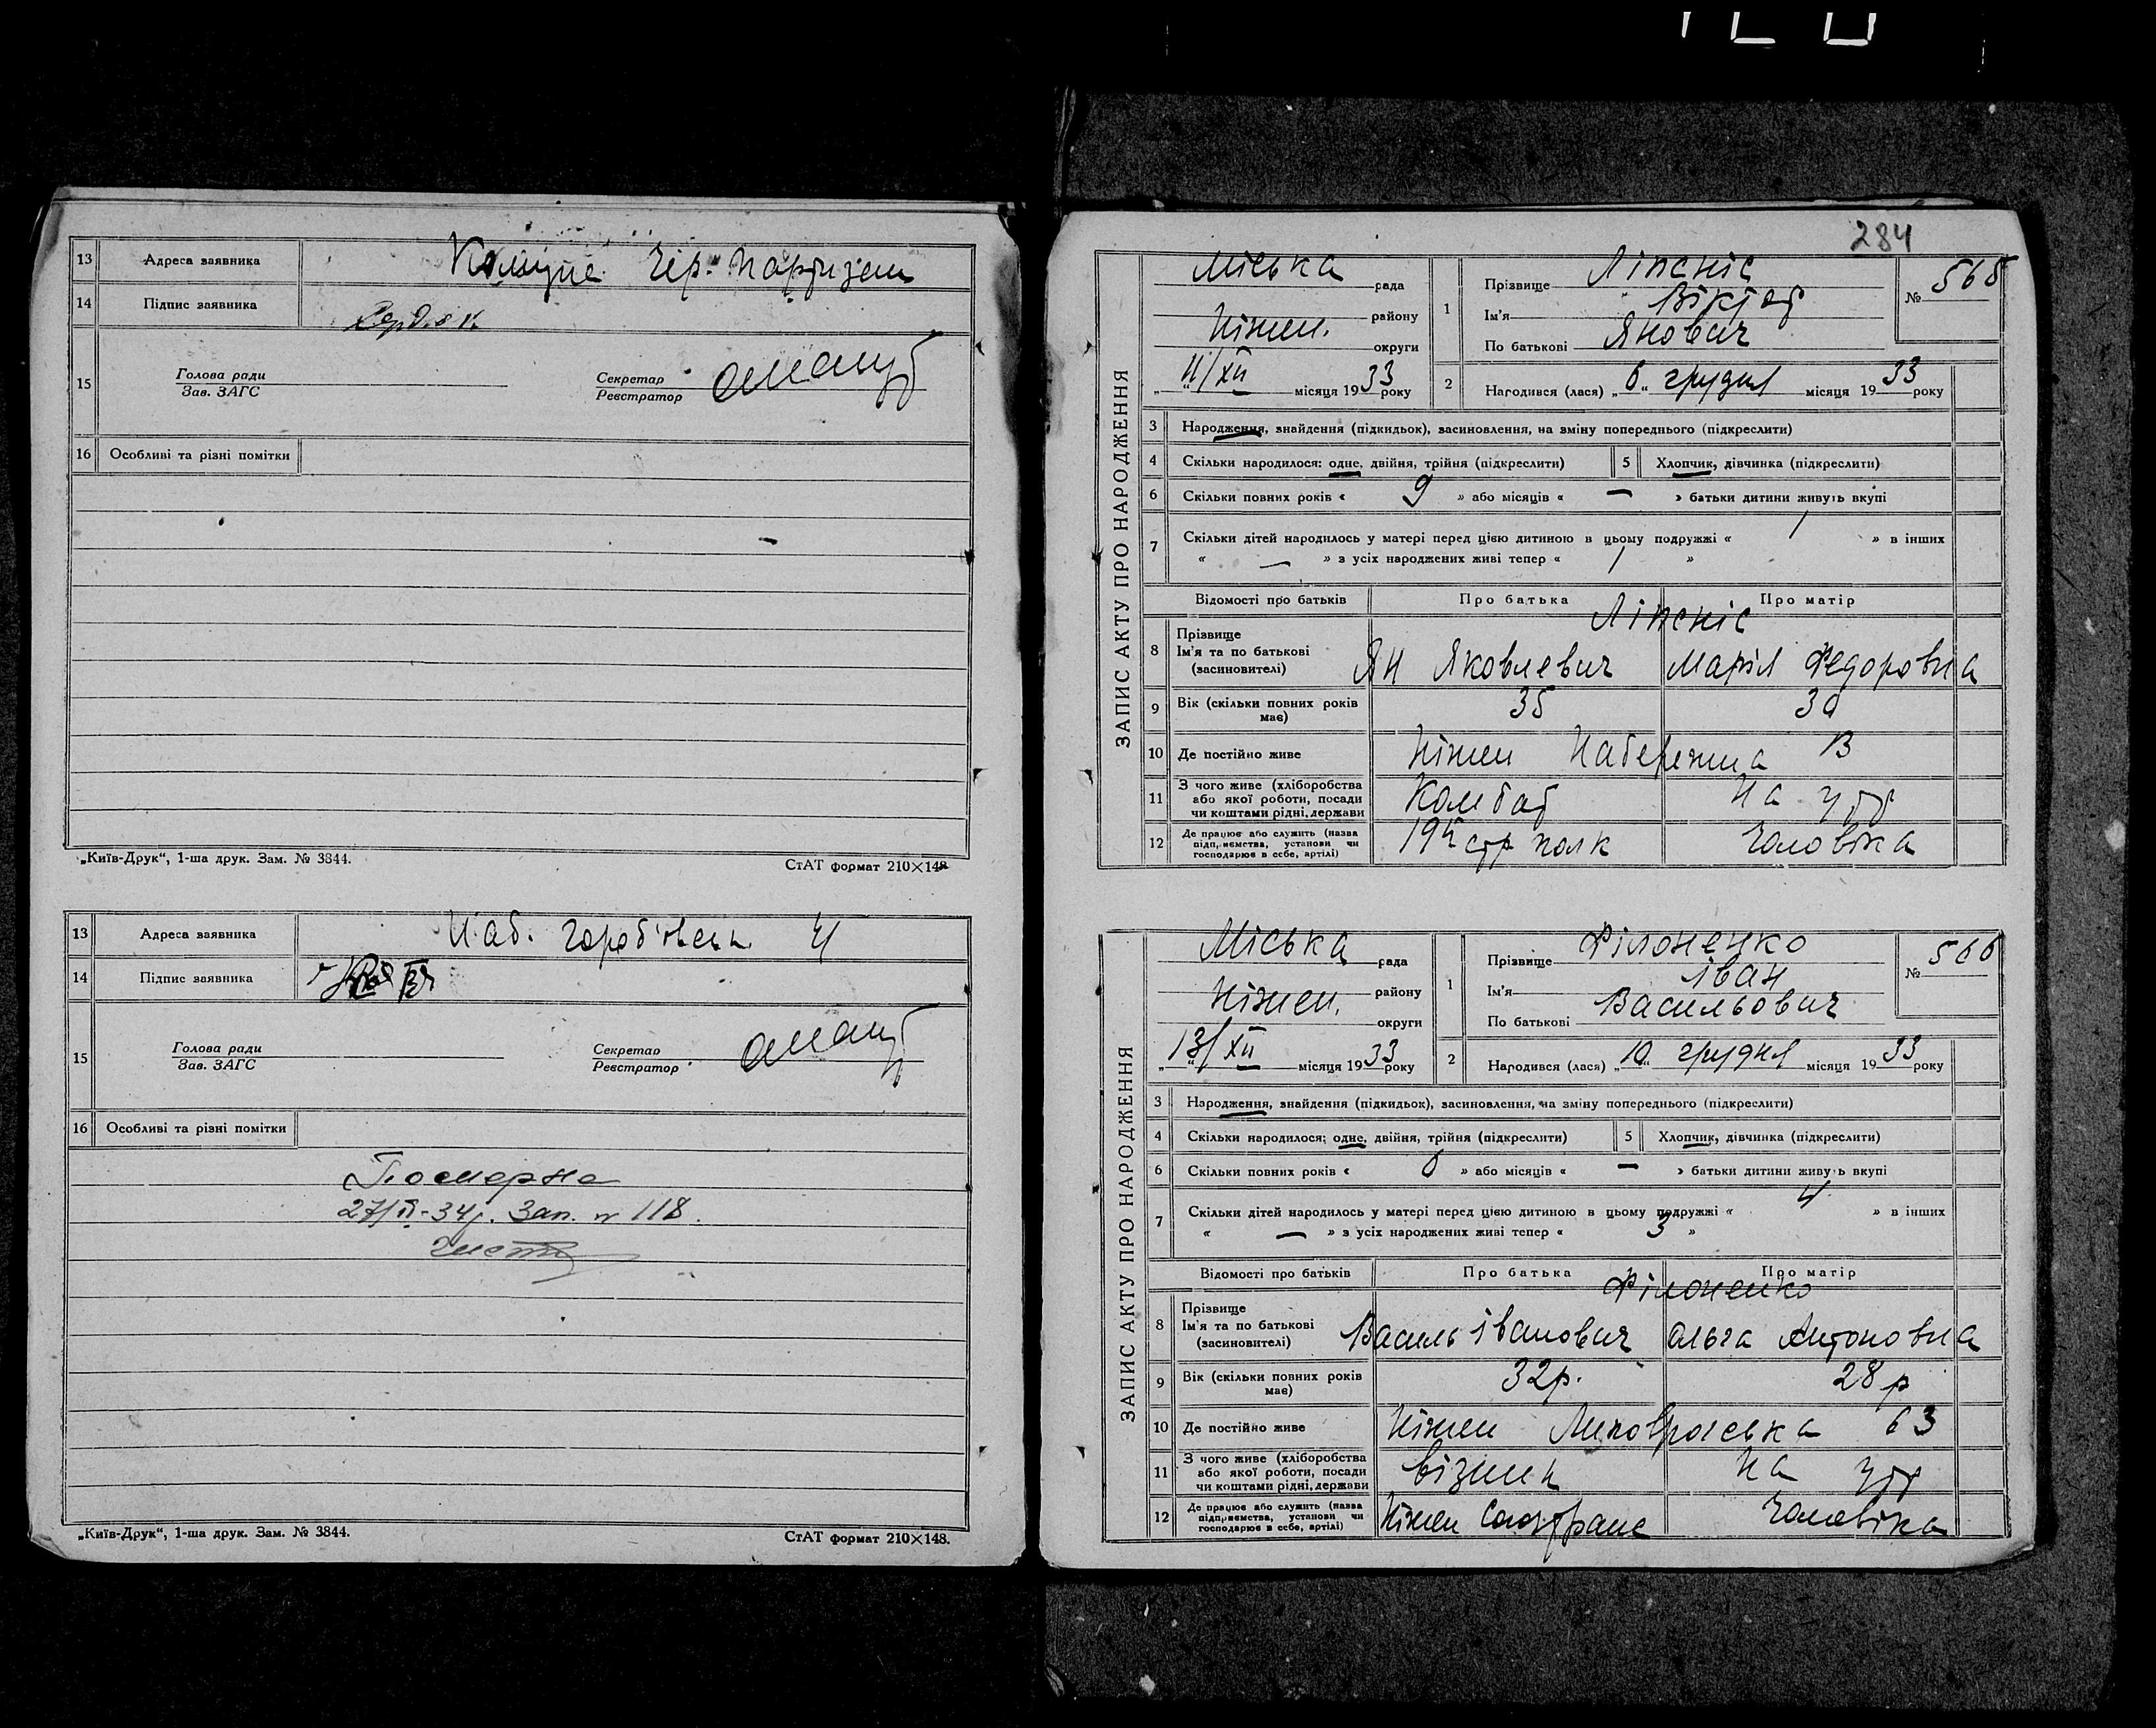 13 Адреса заявника Комуне Чер. Партизан
14 Підпис заявника Сердюк
15 Голова ради
Зав. ЗАГС
Секретар
Реєстратор
16 Особливі та різні помітки
„Київ-Друк“, 1-ша друк. Зам. № 3844. СтАТ формат 210×148
13 Адреса заявника 4
14 Підпис заявника
15 Голова ради
Зав. ЗАГС
Секретар
Реєстратор
16 Особливі та різні помітки
27/ -34р. Зап. № 118.
„Київ-Друк“, 1-ша друк. Зам. № 3844. СтАТ формат 210×148.
284
ЗАПИС АКТУ ПРО НАРОДЖЕННЯ
Міська рада
району
Ніжен. округи
„11/XII місяця 1933 року
1 Прізвище Ліпсніс
Ім'я Віктор
По батькові Янович
№ 565
2 Народився (лася) „6“ грудня місяця 1933 року
3 Народження, знайдення (підкидьок), засиновлення, на зміну попереднього (підкреслити)
4 Скільки народилося: одне, двійня, трійня (підкреслити) 5 Хлопчик, дівчинка (підкреслити)
6 Скільки повних років « 9 » або місяців « — » батьки дитини живуть вкупі
7 Скільки дітей народилось у матері перед цією дитиною в цьому подружжі « 1 » в інших
« — » з усіх народжених живі тепер « 1 »
Відомості про батьків Про батька Про матір
Ліпсніс
8 Прізвище
Ім'я та по батькові
(засиновителі)
Ян Яковлевич Марія Федоровна
9 Вік (скільки повних років має) 35 30
10 Де постійно живе Ніжен Набережна 13
11 З чого живе (хліборобства
або якої роботи, посади
чи коштами рідні, держави
Комбат На утр
12 Де працює або служить (назва
підприємства, установи чи
господарює в себе, артілі)
19й стр полк Чоловіка
ЗАПИС АКТУ ПРО НАРОДЖЕННЯ
Міська рада
району
Ніжен. округи
„13/XII місяця 1933 року
1 Прізвище Філоненко
Ім'я Іван
По батькові Васильович
№ 566
2 Народився (лася) „10“ грудня місяця 1933 року
3 Народження, знайдення (підкидьок), засиновлення, на зміну попереднього (підкреслити)
4 Скільки народилося: одне, двійня, трійня (підкреслити) 5 Хлопчик, дівчинка (підкреслити)
6 Скільки повних років « » або місяців « — » батьки дитини живуть вкупі
7 Скільки дітей народилось у матері перед цією дитиною в цьому подружжі « 4 » в інших
« — » з усіх народжених живі тепер « 3 »
Відомості про батьків Про батька Про матір
Філоненко
8 Прізвище
Ім'я та по батькові
(засиновителі)
Василь Іванович Ольга Антоновна
9 Вік (скільки повних років має) 32р. 28р
10 Де постійно живе Ніжен 63
11 З чого живе (хліборобства
або якої роботи, посади
чи коштами рідні, держави
Візник На утр
12 Де працює або служить (назва
підприємства, установи чи
господарює в себе, артілі)
Ніжен Союзтранс Чоловіка